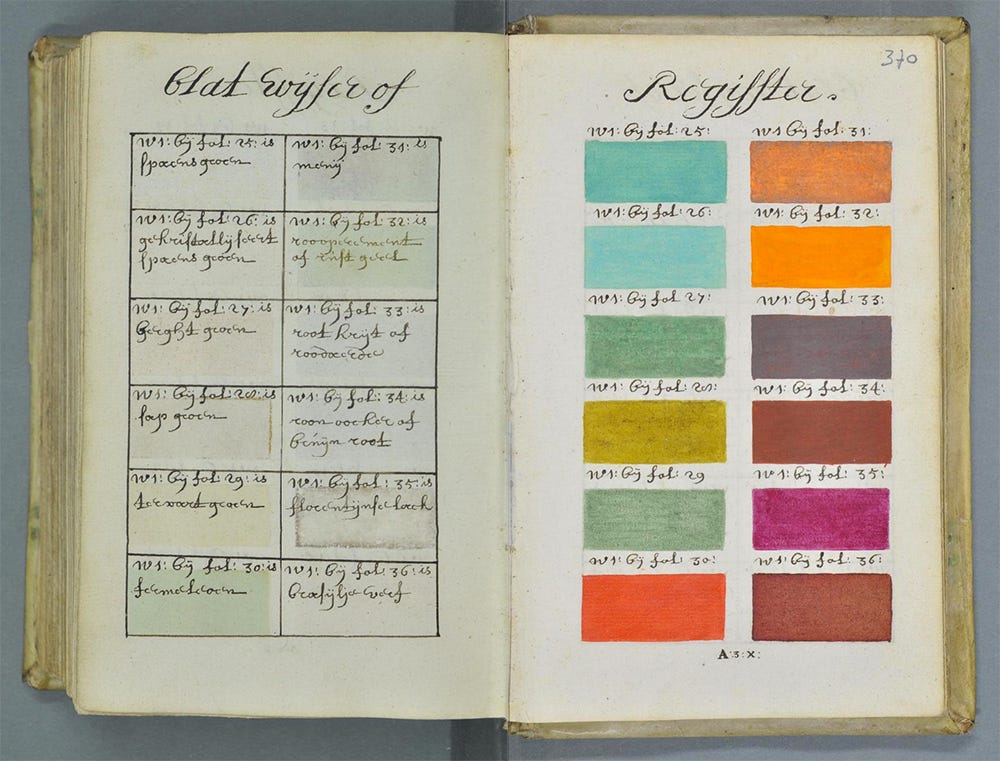 Blat Wijser of
w1: bij fol: 25: is
spaens groen
w1: bij fol: 26: is
gekristallijseert
spaens groen
w1: bij fol: 27: is
berght groen
w1: bij fol: 28: is
sap groen
w1: bij fol: 29: is
groen
w1: bij fol: 30: is
w1: bij fol: 31: is
menij
w1: bij fol: 32: is
of rust geel
w1: bij fol: 33: is
root krijt of
w1: bij fol: 34: is
roon oocker of
bruijn root
w1: bij fol: 35: is
florentijnse lack
w1: bij fol: 36: is
brasijlje verf
370
Regisster.
w1: bij fol: 25:
w1: bij fol: 26:
w1: bij fol: 27:
w1: bij fol: 28:
w1: bij fol: 29
w1: bij fol: 30:
w1 bij fol: 31:
w1: bij fol: 32:
w1: bij fol: 33:
w1: bij fol: 34:
w1: bij fol: 35:
w1: bij fol: 36:
A:3:x: